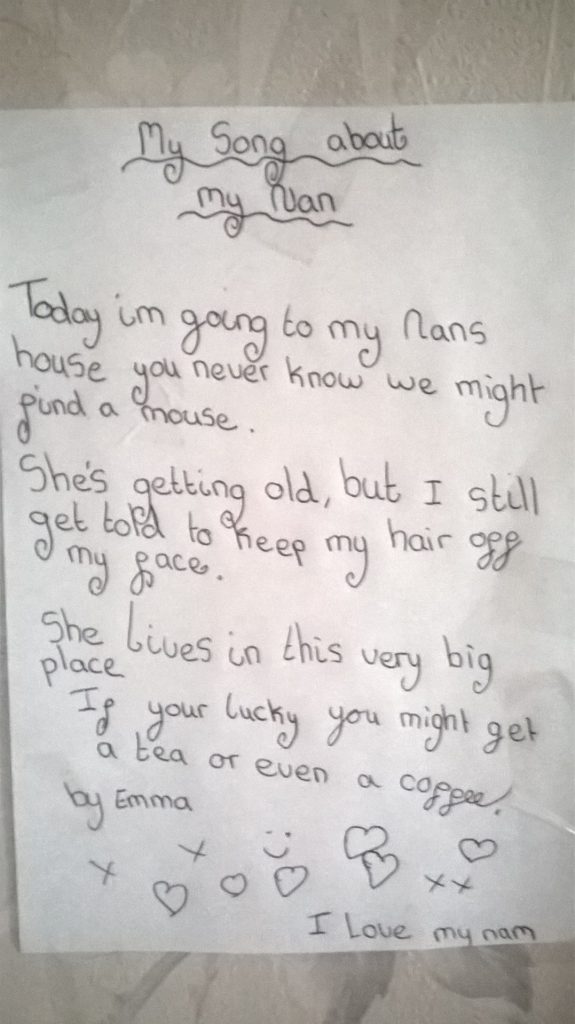 My Song about
my Nan
Today im going to my Nans
house you never know we might
find a mouse.
She's getting old, but I still
get told to keep my hair off
my face.
She lives in this very big
place
If your lucky you might get
a tea or even a coffee.
by Emma
x x
xx
I Love my nam